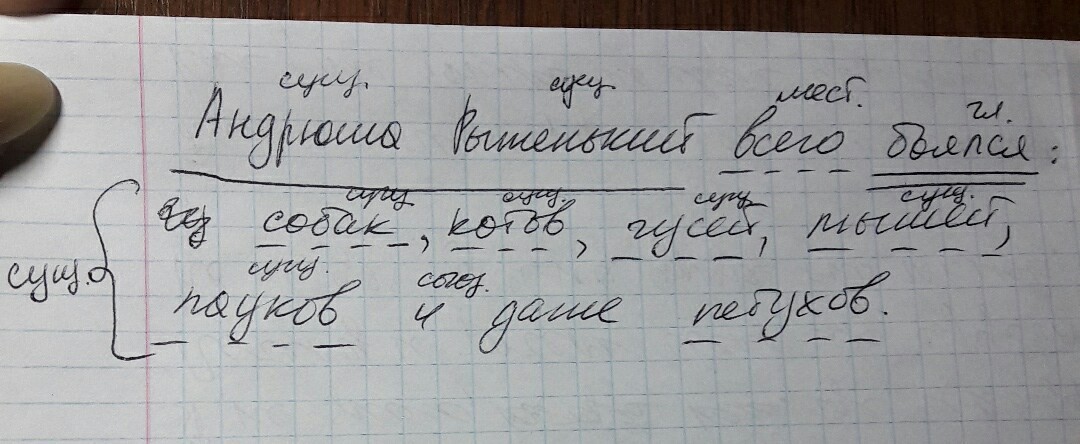 сущ. сущ. мест. гл.
Андрюша Рыженький всего боялся:
сущ. сущ. сущ. сущ.
собак, котов, гусей, мышей,
сущ. сущ. союз.
пауков и даже петухов.